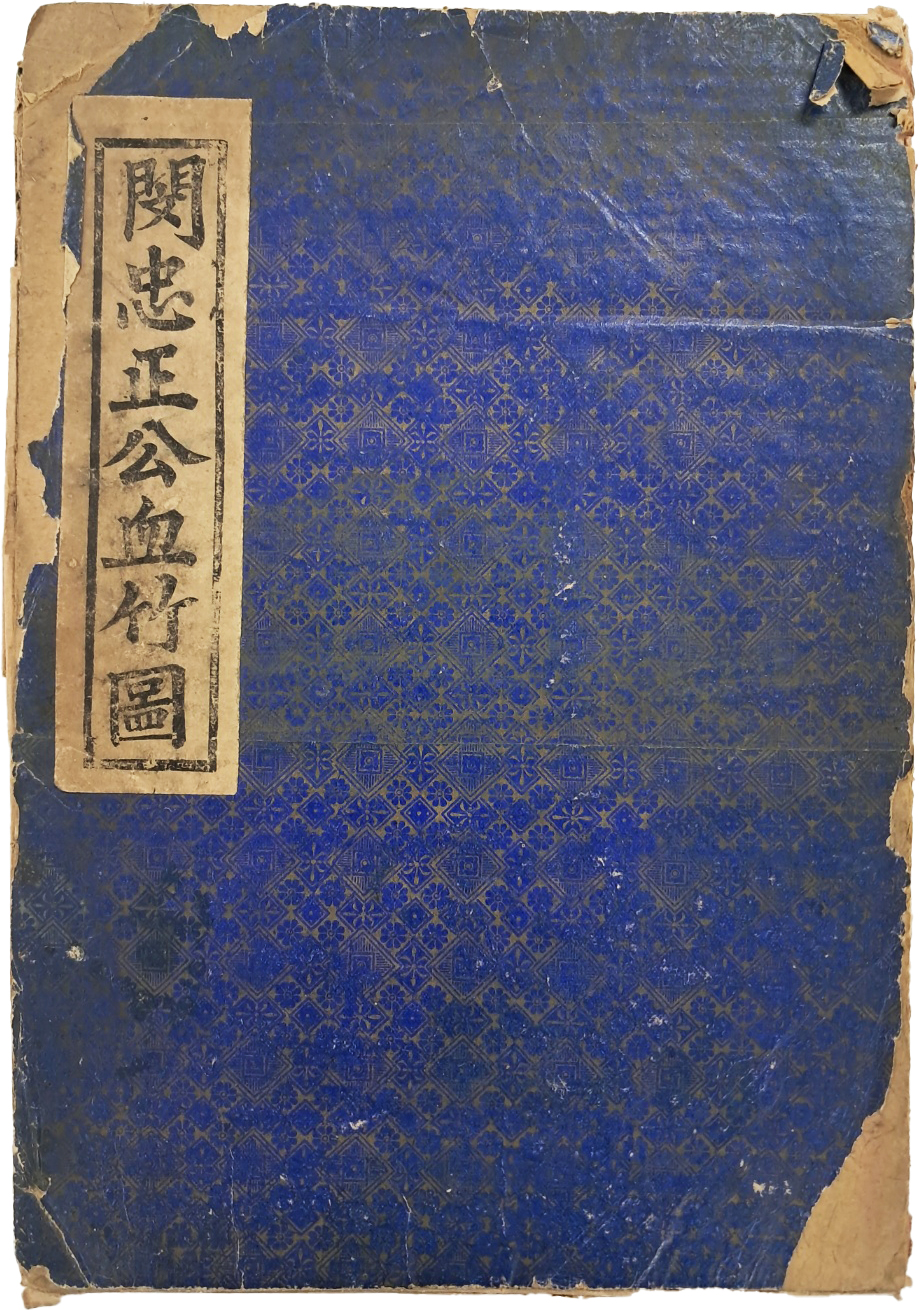 閔忠正公血竹圖